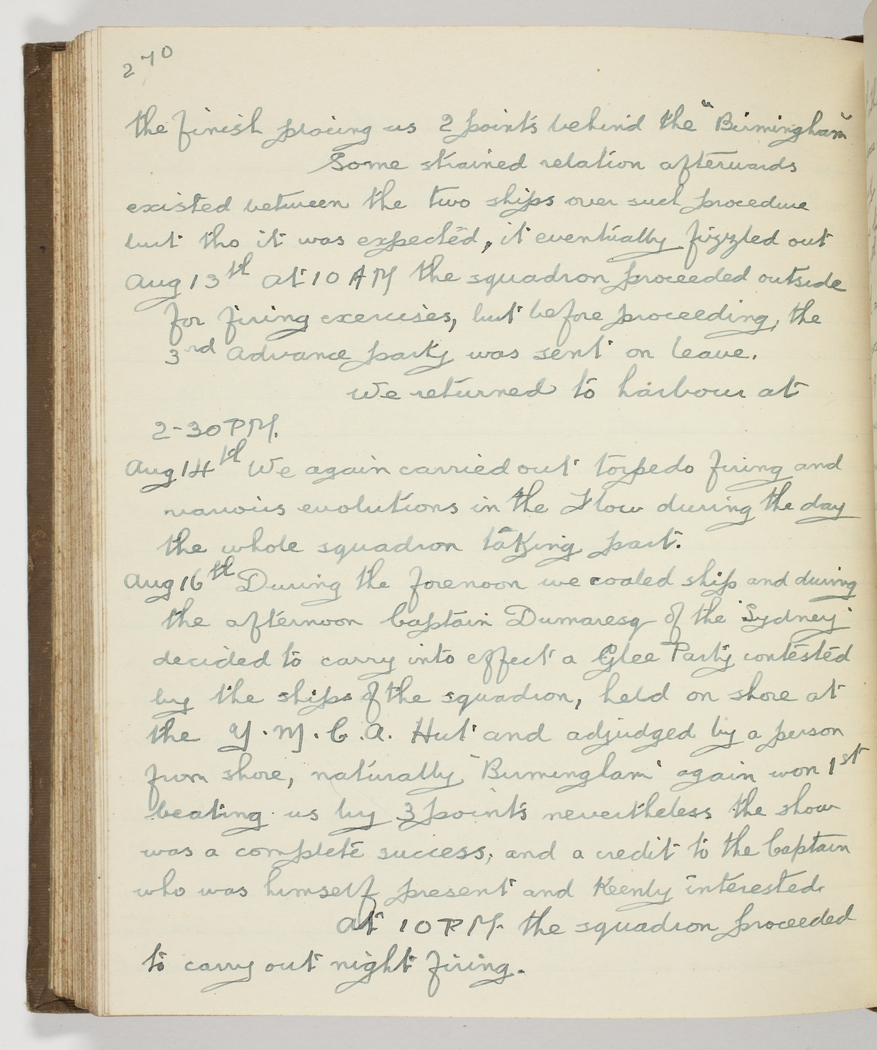 270
the finish placing us 2 points behind the "Birmingham"
Some strained relation afterwards
existed between the two ships over such procedure
but tho it was expected, it eventually fizzled out
Aug 13th At 10 AM the squadron proceeded outside
for firing exercises, but before proceeding, the
3rd Advance party was sent on leave.
We returned to harbour at
2-30 PM.
Aug 14th We again carried out torpedo firing and
various evolutions in the Flow during the day
the whole squadron taking part.
Aug 16th During the forenoon we coaled ship and during
the afternoon Captain Dumaresq of the "Sydney"
decided to carry into effect a Glee Party contested
by the ships of the squadron, held on shore at
the Y.M.C.A. Hut and adjudged by a person
from shore, naturally "Birmingham" again won 1st
beating us by 3 points nevertheless the show
was a complete success, and a credit to the Captain
who was himself present and Keenly interested.
At 10 PM. the squadron proceeded
to carry out night firing.